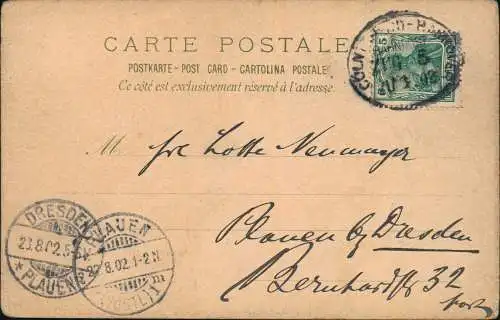 CARTE POSTALE
POSTKARTE - POST CARD - CARTOLINA POSTALE
Ce côté est exclusivement réservé à l'adresse.
ZUG 5
M
Lotte Neumayer
Plauen b/ Dresden
Bernhardstr 32
DRESDEN
23.8.02.5
* PLAUEN
8.02.1-2N